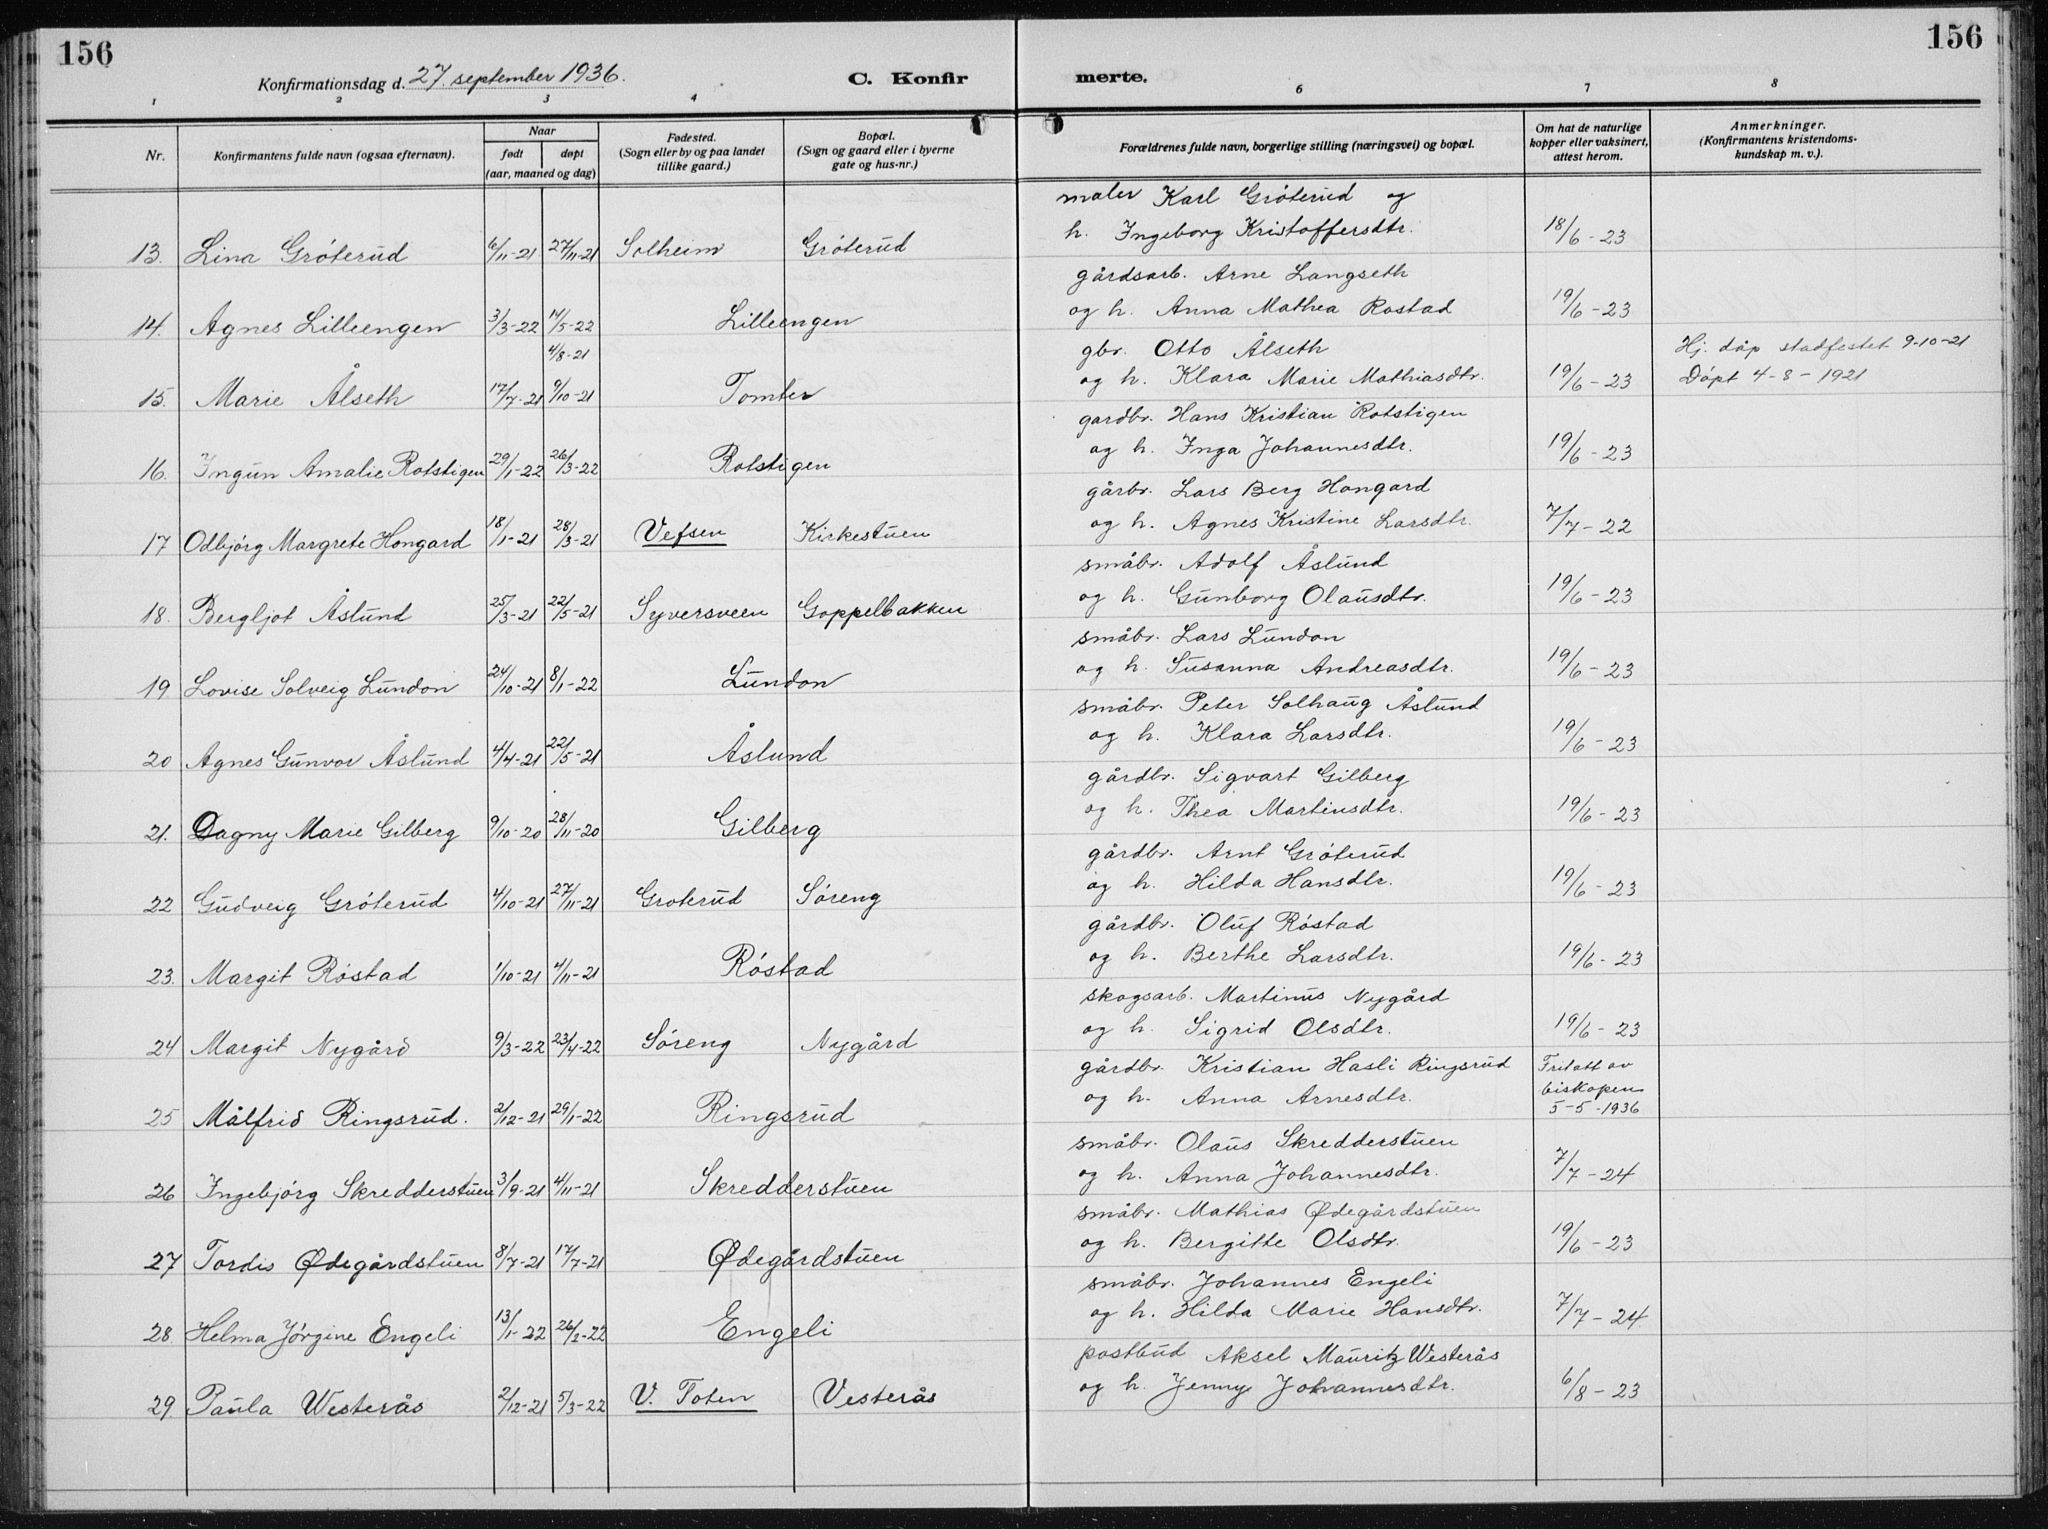 156
156
Konfirmationsdag d. 27. september 1936.
C. Konfir
merte.
1 2 3 4 6 7 8
Nr.
Konfirmantens fulde navn (ogsaa efternavn).
Naar
født
døpt
(aar, maaned og dag)
Fødested.
(Sogn eller by og paa landet
tillike gaard.)
Bopæl.
(Sogn og gaard eller i byerne
gate og hus-nr.)
Forældrenes fulde navn, borgerlige stilling (næringsvei) og bopæl.
Om hat de naturlige
kopper eller vaksinert,
attest herom.
Anmerkninger.
(Konfirmantens kristendoms-
kundskap m. v.).
maler Karl Gróterud og
13. Lina Gróterud 6/11-21 27/11-21 Solheim Gróterud h. Ingeborg Kristoffersdtr. 18/6-23
gårdsarb. Arne Langseth
14. Agnes Lilleengen 3/3-22 14/5-22 Lilleengen og h. Anna Mathea Rostad 19/6-23
4/8-21 gbr. Otto Ålseth Hj. dåp stadfestet 9-10-21
15. Marie Ålseth 17/7-21 9/10-21 Tomter og h. Klara Marie Mathiasdtr. 19/6-23 Dópt 4-8-1921
gardbr. Hans Kristian Rotstigen
16. Ingun Amalie Rotstigen 29/1-22 26/3-22 Rotstigen og h. Inga Johannesdtr. 19/6-23
gårbr. Lars Berg Hongard
17 Odbjórg Margrete Hongard 18/1-21 28/3-21 Vefsen Kirkestuen og h. Agnes Kristine Larsdtr. 7/7-22
småbr. Adolf Åslund
18. Bergljot Åslund 25/3-21 22/5-21 Syversveen Goppelbakken og h. Gunborg Olausdtr. 19/6-23
småbr. Lars Lundon
19 Lovise Solveig Lundon 24/10-21 8/1-22 Lundon og h. Susanna Andreasdtr. 19/6-23
småbr. Peter Solhaug Åslund
20 Agnes Gunvor Åslund 4/4-21 22/5-21 Åslund og h. Klara Larsdtr. 19/6-23
gårdbr. Sigvart Gilberg
21. Dagny Marie Gilberg 9/10-20 28/11-20 Gilberg og h. Thea Martinsdtr. 19/6-23
gårdbr. Arnt Gróterud
22 Gudveig Gróterud 4/10-21 27/11-21 Groterud Sóreng og h. Hilda Hansdtr. 19/6-23
gårdbr. Oluf Róstad
23. Margit Róstad 1/10-21 4/11-21 Róstad og h. Berthe Larsdtr. 19/6-23
skogsarb. Martinus Nygård
24 Margit Nygård 9/3-22 23/4-22 Sóreng Nygård og h. Sigrid Olsdtr. 19/6-23
gårdbr. Kristian Hasli Ringsrud Fritatt av
25 Målfrid Ringsrud. 2/12-21 29/1-22 Ringsrud og h. Anna Arnesdtr. biskopen
5-5-1936
småbr. Olaus Skredderstuen
26 Ingebjórg Skredderstuen 3/9-21 4/11-21 Skredderstuen og h. Anna Johannesdtr. 7/7-24
småbr. Mathias Ødegårdstuen
27 Tordis Ødegårdstuen 8/7-21 17/7-21 Ødegårdstuen og h. Bergitte Olsdtr. 19/6-23
småbr. Johannes Engeli
28 Helma Jórgine Engeli 13/1-22 26/2-22 Engeli og h. Hilda Marie Hansdtr. 7/7-24
postbud Aksel Mauritz Westerås
29. Paula Westerås 2/12-21 5/3-22 V. Toten Vesterås og h. Jenny Johannesdtr. 6/8-23